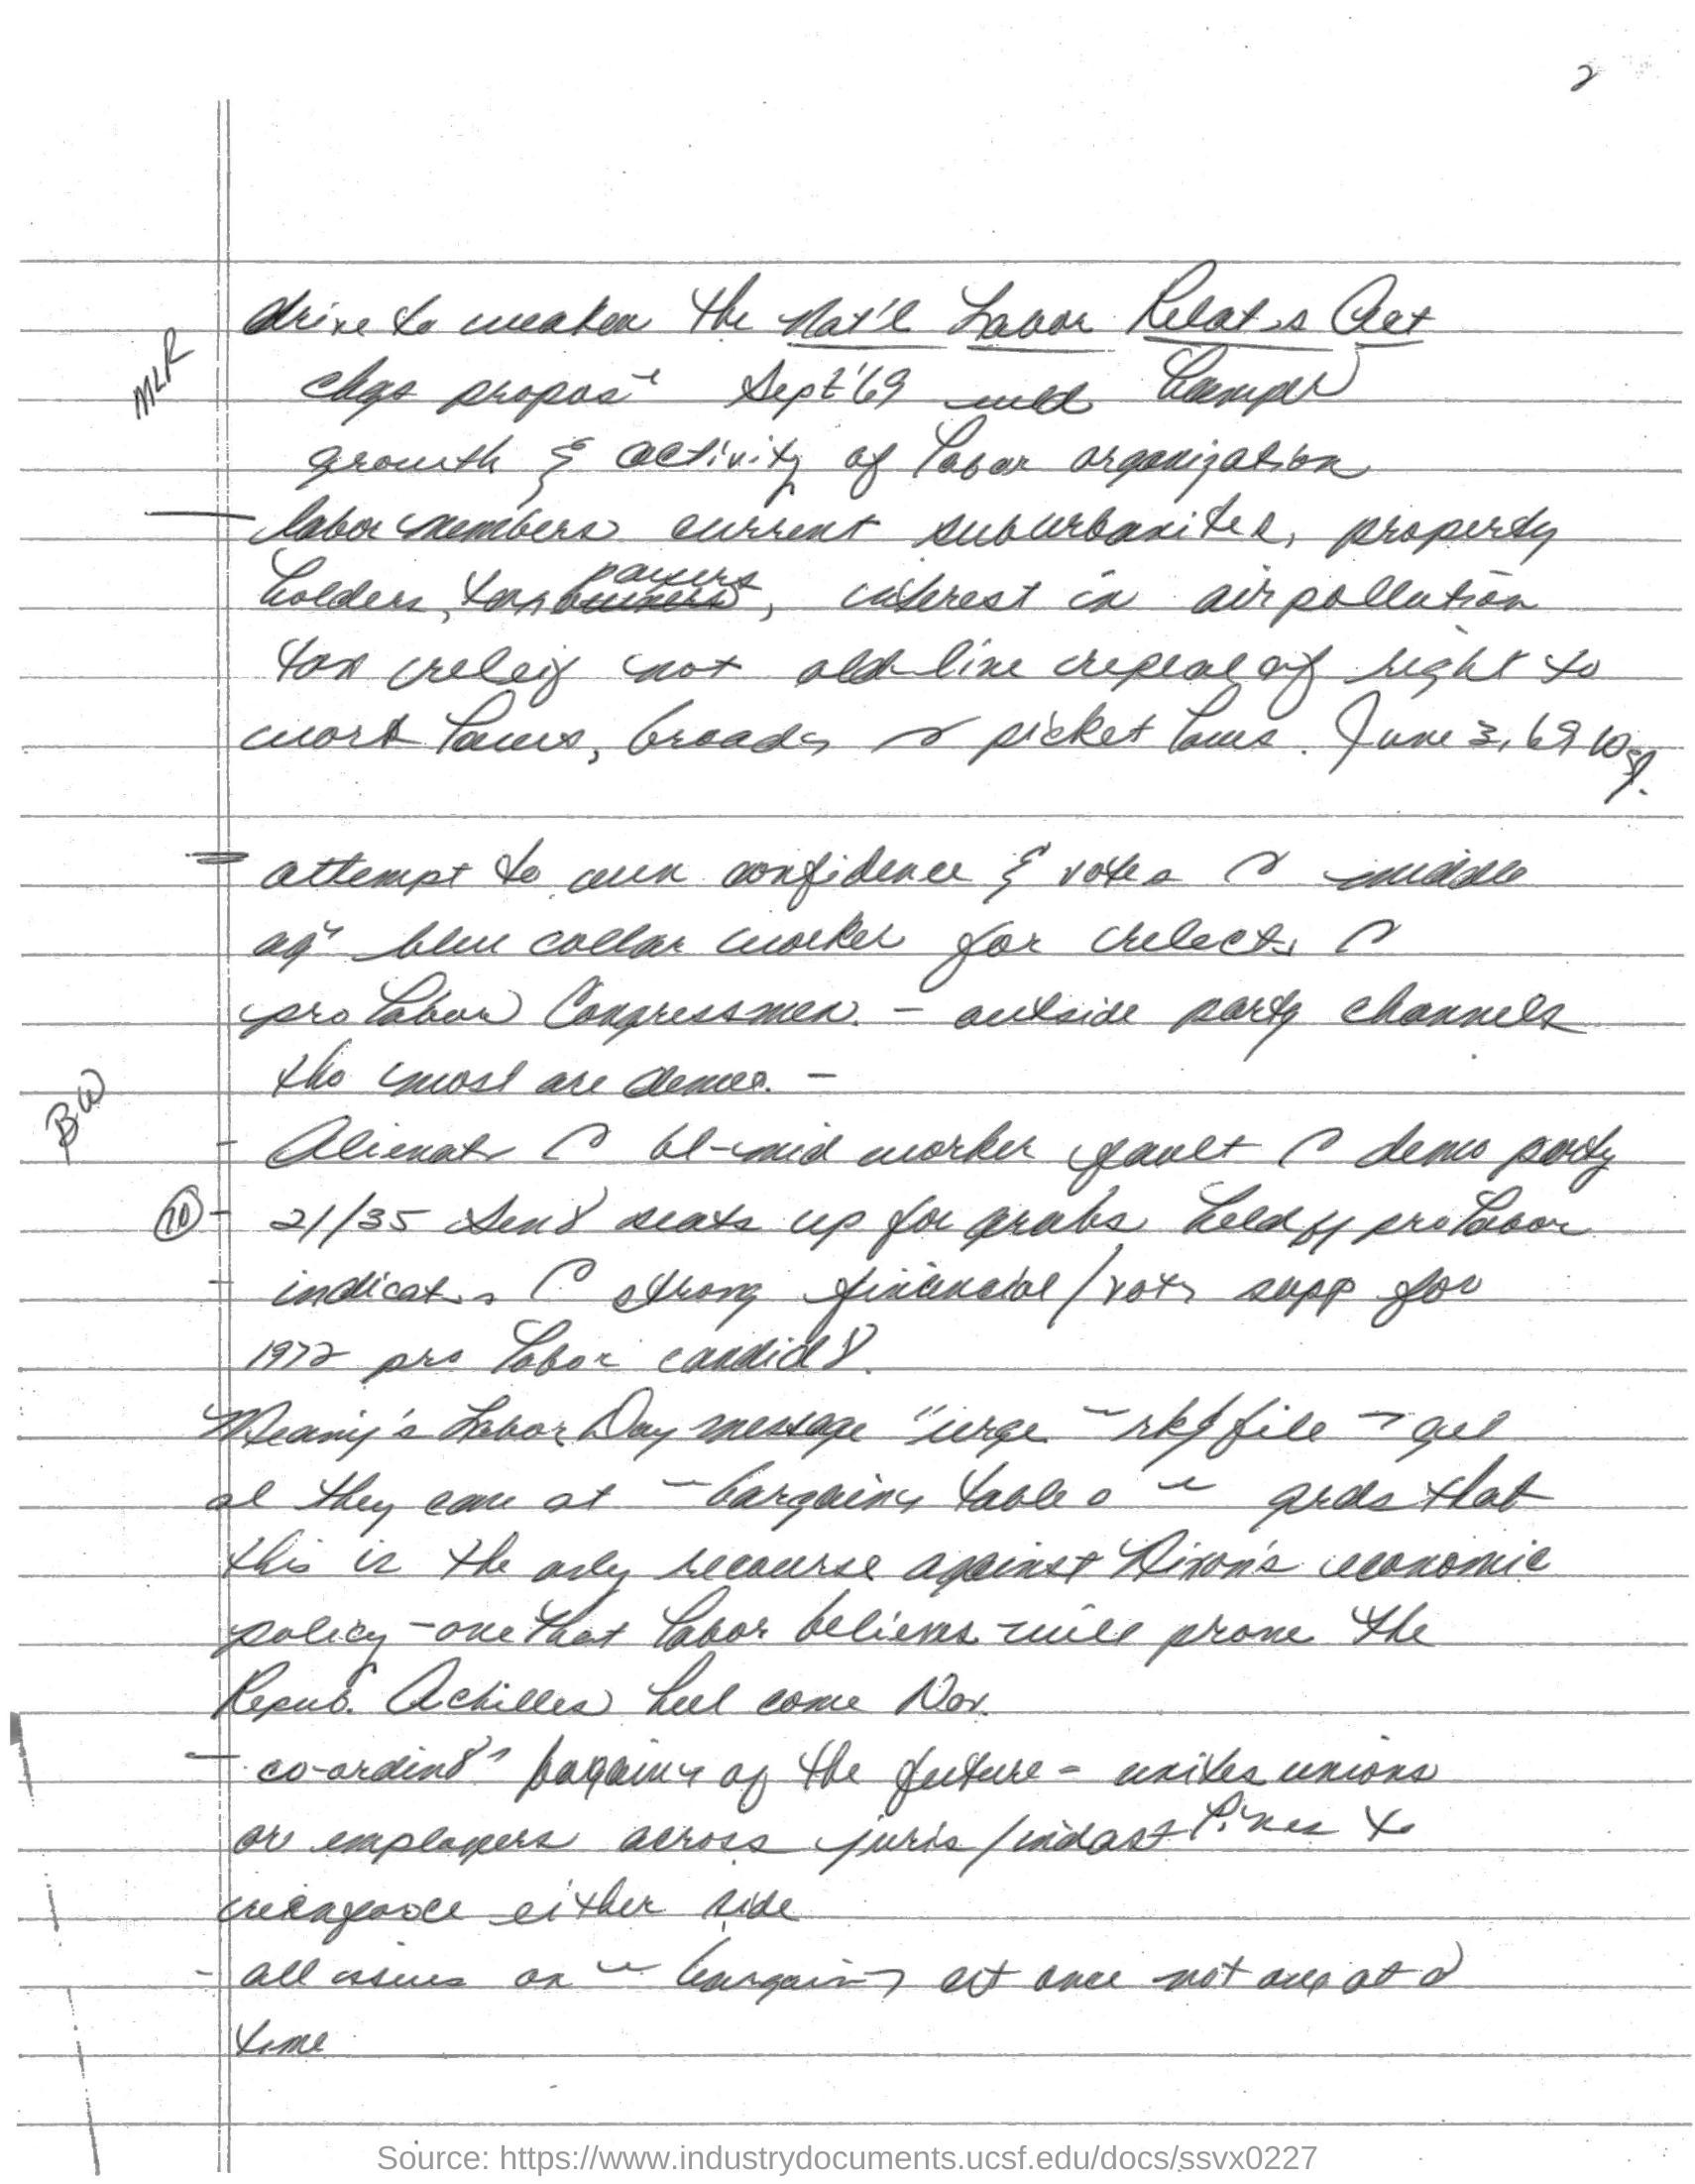 2
drive to weaken the Nat'l Labor Relat s Act
MLR
chgs propos Sept '69 wuld hamper
growth & activity of labor organization
labor members current suburbanites, property
holders, tax payers, interest in air pollution
tax releif not old-line repeal of right to
work laws, broads picket laws. June 3, 69 WSJ.
attempt to win confidence & votes middle
ag blue collar worker for relect
pro labor Congressmen. - outside party channels
tho most are demos. -
BW
- Alienat bl-mid worker fault demo party
(10) - 21/35 Sen8 seats up for grabs held by pro labor
- indicat s strong financial/vot supp for
1972 pro labor candid8.
Meany's Labor Day message "urge rk/file get
al they can at bargaining table grds that
this is the only recourse against Nixon's economic
policy - one that labor believes will prove the
Repub. Achilles heel come Nov.
- co-ordin8 bagaining of the future - unites unions
or employers across juris/indust lines to
reinforce either side
- all issues on bargaining at once not one at a
time
Source: https://www.industrydocuments.ucsf.edu/docs/ssvx0227